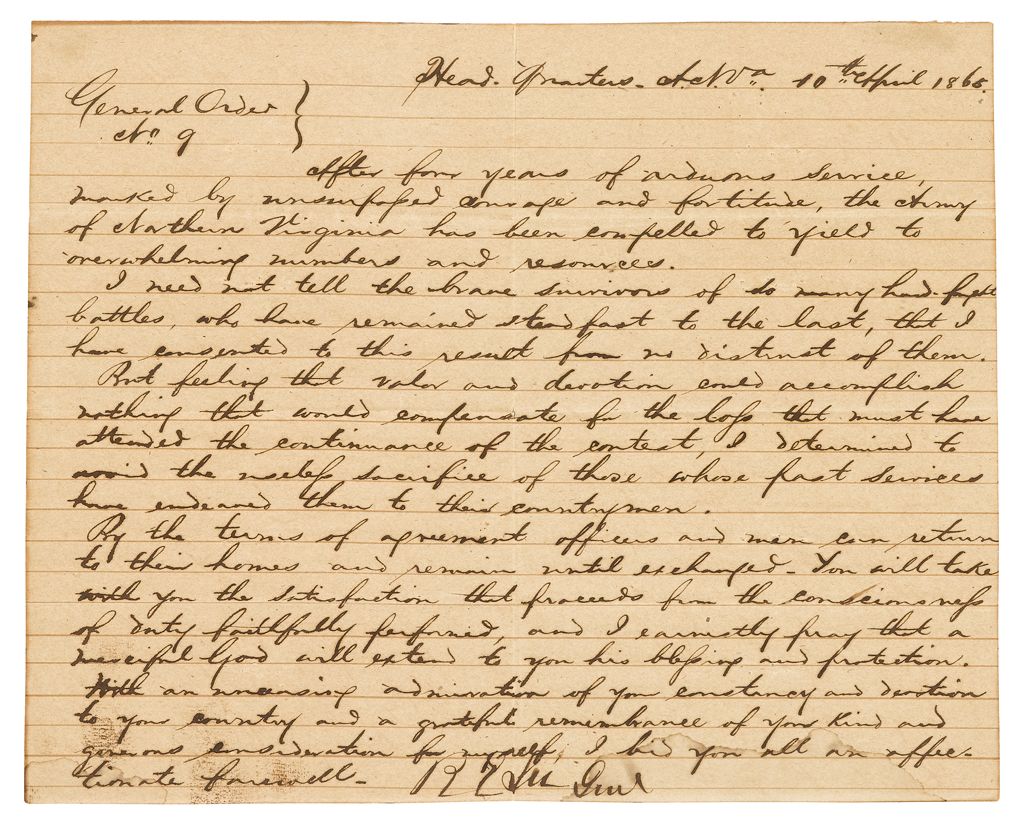 Head. Quarters. A.N.Va. 10th April 1865.
General Order
No 9
After four years of arduous service,
marked by unsurpassed courage and fortitude, the Army
of Northern Virginia has been compelled to yield to
overwhelming numbers and resources.
I need not tell the brave survivors of so many hard-fought
battles, who have remained steadfast to the last, that I
have consented to this result from no distrust of them.
But feeling that valor and devotion could accomplish
nothing that would compensate for the loss that must have
attended the continuance of the contest, I determined to
avoid the useless sacrifice of those whose past services
have endeared them to their countrymen.
By the terms of agreement officers and men can return
to their homes and remain until exchanged - You will take
with you the satisfaction that proceeds from the consciousness
of duty faithfully performed, and I earnestly pray that a
merciful God will extend to you his blessing and protection.
With an unceasing admiration of your constancy and devotion
to your country and a grateful remembrance of your kind and
generous consideration for myself, I bid you all an affec-
tionate farewell - R E Lee Genl